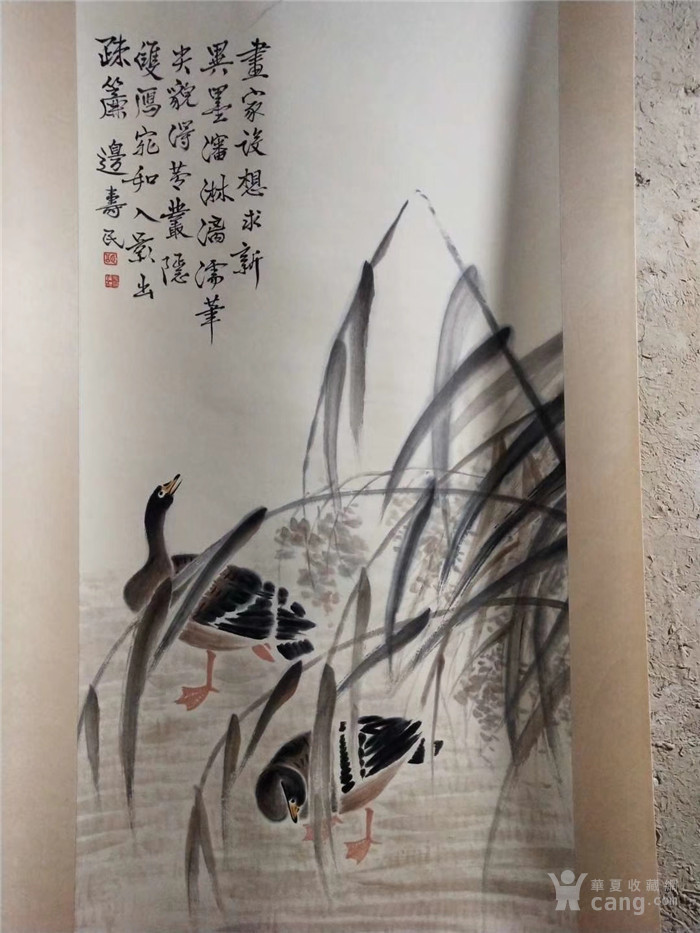 畫家設想求新
異墨瀋淋漓濡筆
尖貌得叢隱
雙宛和入影出
疎簾 邊壽民
華夏收藏網
cang.com